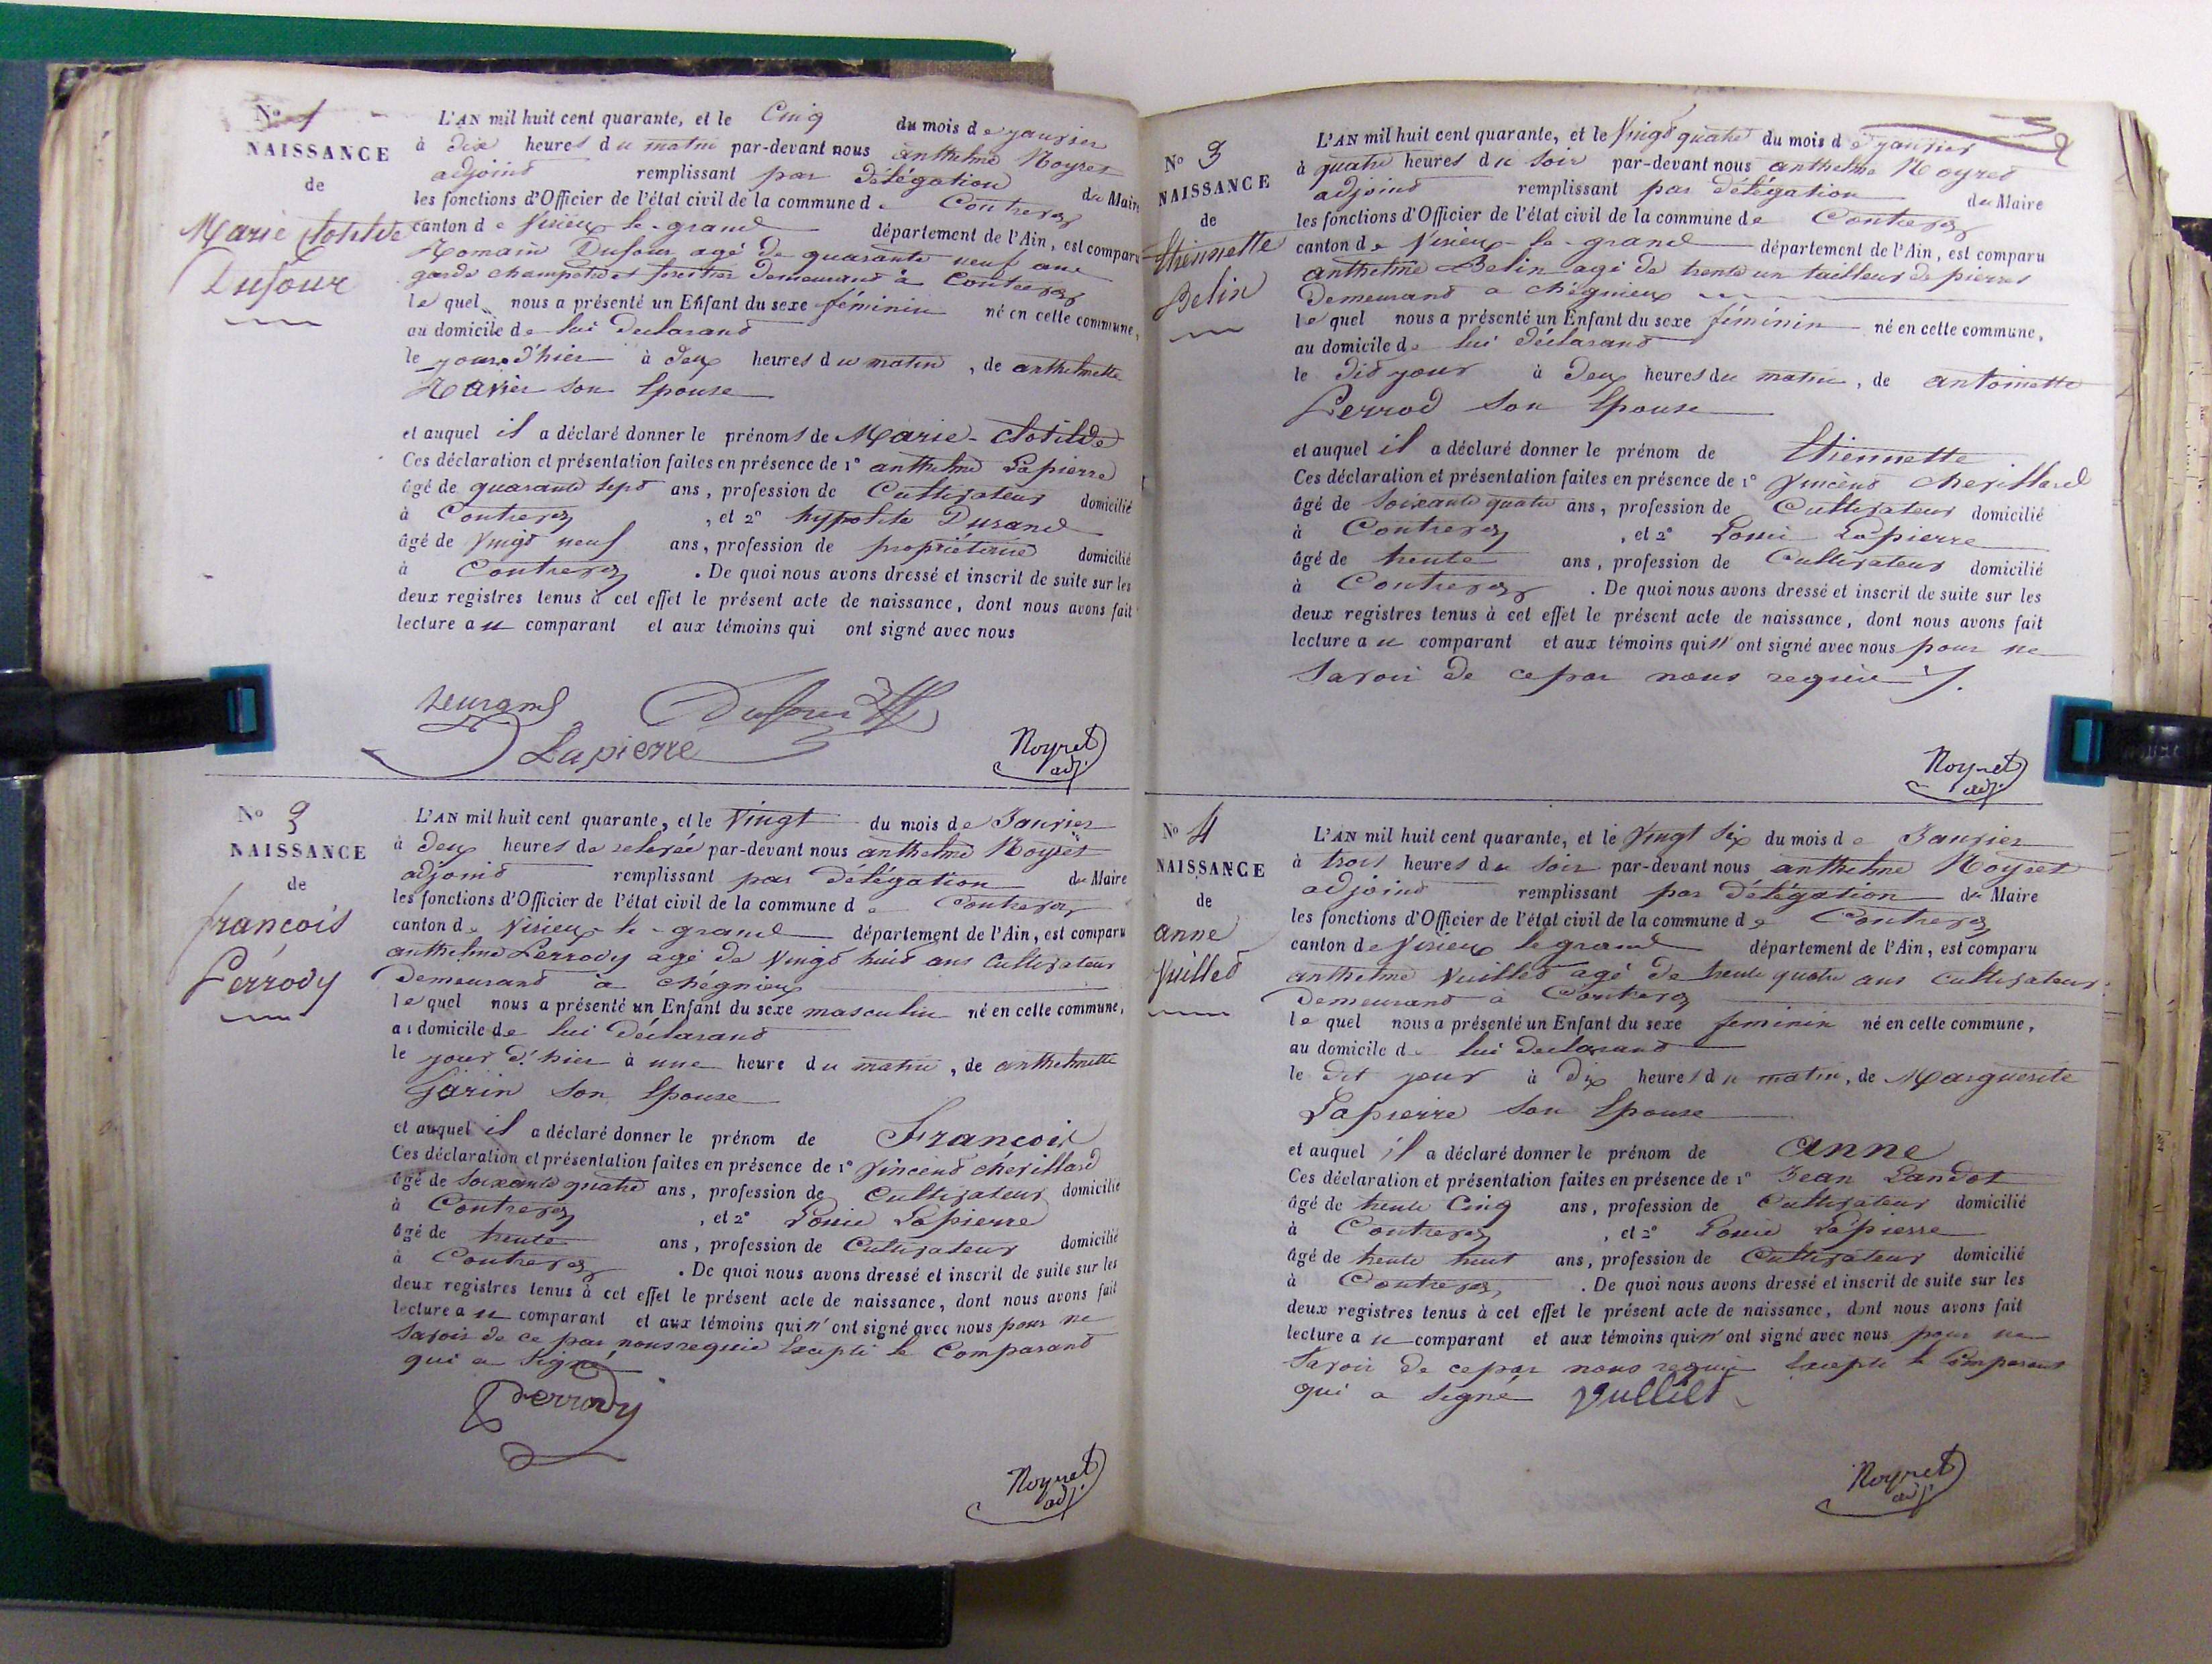 No 1
NAISSANCE
de
Marie Clotilde
Dufour
L'AN mil huit cent quarante, et le Cinq du mois de janvier
à dix heures du matin par-devant nous anthelme Noyret
adjoint remplissant par délégation du Maire
les fonctions d'Officier de l'état civil de la commune de Contrevoz
canton de Virieux le-grand département de l'Ain, est comparu
Romain Dufour agé de quarante neuf ans
garde champetre et forestier demeurant à Contrevoz
le quel nous a présenté un Enfant du sexe féminin né en cette commune,
au domicile de lui declarant
le jour d'hier à deux heures du matin, de anthelmette
son Epouse
et auquel il a déclaré donner le prénoms de Marie-Clotilde
Ces déclaration et présentation faites en présence de 1° anthelme Lapierre
âgé de quarante sept ans, profession de Cultivateur domicilié
à Contrevoz, et 2° hyppolite Durand
âgé de vingt neuf ans, profession de propriétaire domicilié
à Contrevoz. De quoi nous avons dressé et inscrit de suite sur les
deux registres tenus à cet effet le présent acte de naissance, dont nous avons fait
lecture au comparant et aux témoins qui ont signé avec nous
Dufour
Lapierre
Noyret
adj.
No
NAISSANCE
de
francois
Perrody
L'AN mil huit cent quarante, et le Vingt du mois de Janvier
à deux heures de relevée par-devant nous anthelme Noyret
adjoint remplissant par délégation du Maire
les fonctions d'Officier de l'état civil de la commune de Contrevoz
canton de Virieux le-grand département de l'Ain, est comparu
anthelme Perrody agé de vingt huit ans Cultivateur
demeurant à chégnieux
le quel nous a présenté un Enfant du sexe masculin né en cette commune,
au domicile de lui déclarant
le jour d'hier à une heure du matin, de anthelmette
Garin son Epouse
et auquel il a déclaré donner le prénom de François
Ces déclaration et présentation faites en présence de 1° Vincent chevillard
âgé de soixante quatre ans, profession de Cultivateur domicilié
à Contrevoz, et 2° Louis Lapierre
âgé de trente ans, profession de Cultivateur domicilié
à Contrevoz. De quoi nous avons dressé et inscrit de suite sur les
deux registres tenus à cet effet le présent acte de naissance, dont nous avons fait
lecture au comparant et aux témoins qui n'ont signé avec nous pour ne
savoir de ce par nous requis Excepté le Comparant
qui a signé
Perrody
Noyret
adj.
No 3
NAISSANCE
de
Etiennette
Belin
L'AN mil huit cent quarante, et le Vingt quatre du mois de janvier
à quatre heures du soir par-devant nous anthelme Noyret
adjoint remplissant par délégation du Maire
les fonctions d'Officier de l'état civil de la commune de Contrevoz
canton de Virieux-le-grand département de l'Ain, est comparu
anthelme Belin agé de trente un tailleur de pierres
demeurant a chégnieux
le quel nous a présenté un Enfant du sexe féminin né en cette commune,
au domicile de lui déclarant
le dit jour à deux heures du matin, de antoinette
Perrod son Epouse
et auquel il a déclaré donner le prénom de Etiennette
Ces déclaration et présentation faites en présence de 1° Vincent chevillard
âgé de soixante quatre ans, profession de Cultivateur domicilié
à Contrevoz, et 2° Louis Lapierre
âgé de trente ans, profession de Cultivateur domicilié
à Contrevoz. De quoi nous avons dressé et inscrit de suite sur les
deux registres tenus à cet effet le présent acte de naissance, dont nous avons fait
lecture au comparant et aux témoins qui n'ont signé avec nous pour ne
savoir de ce par nous requis
Noyret
adj.
No 4
NAISSANCE
de
anne
Vuillet
L'AN mil huit cent quarante, et le Vingt six du mois de Janvier
à trois heures du soir par-devant nous anthelme Noyret
adjoint remplissant par délégation du Maire
les fonctions d'Officier de l'état civil de la commune de Contrevoz
canton de Virieux le grand département de l'Ain, est comparu
anthelme Vuillet agé de trente quatre ans cultivateur
demeurant à Contrevoz
le quel nous a présenté un Enfant du sexe feminin né en cette commune,
au domicile de lui declarant
le dit jour à dix heures du matin, de Marguerite
Lapierre son Epouse
et auquel il a déclaré donner le prénom de anne
Ces déclaration et présentation faites en présence de 1° Jean Landot
âgé de trente Cinq ans, profession de Cultivateur domicilié
à Contrevoz, et 2° Louis Lapierre
âgé de trente huit ans, profession de Cultivateur domicilié
à Contrevoz. De quoi nous avons dressé et inscrit de suite sur les
deux registres tenus à cet effet le présent acte de naissance, dont nous avons fait
lecture au comparant et aux témoins qui n'ont signé avec nous pour ne
savoir de ce par nous requis Excepté le Comparant
qui a signé Vullilt
Noyret
adj.